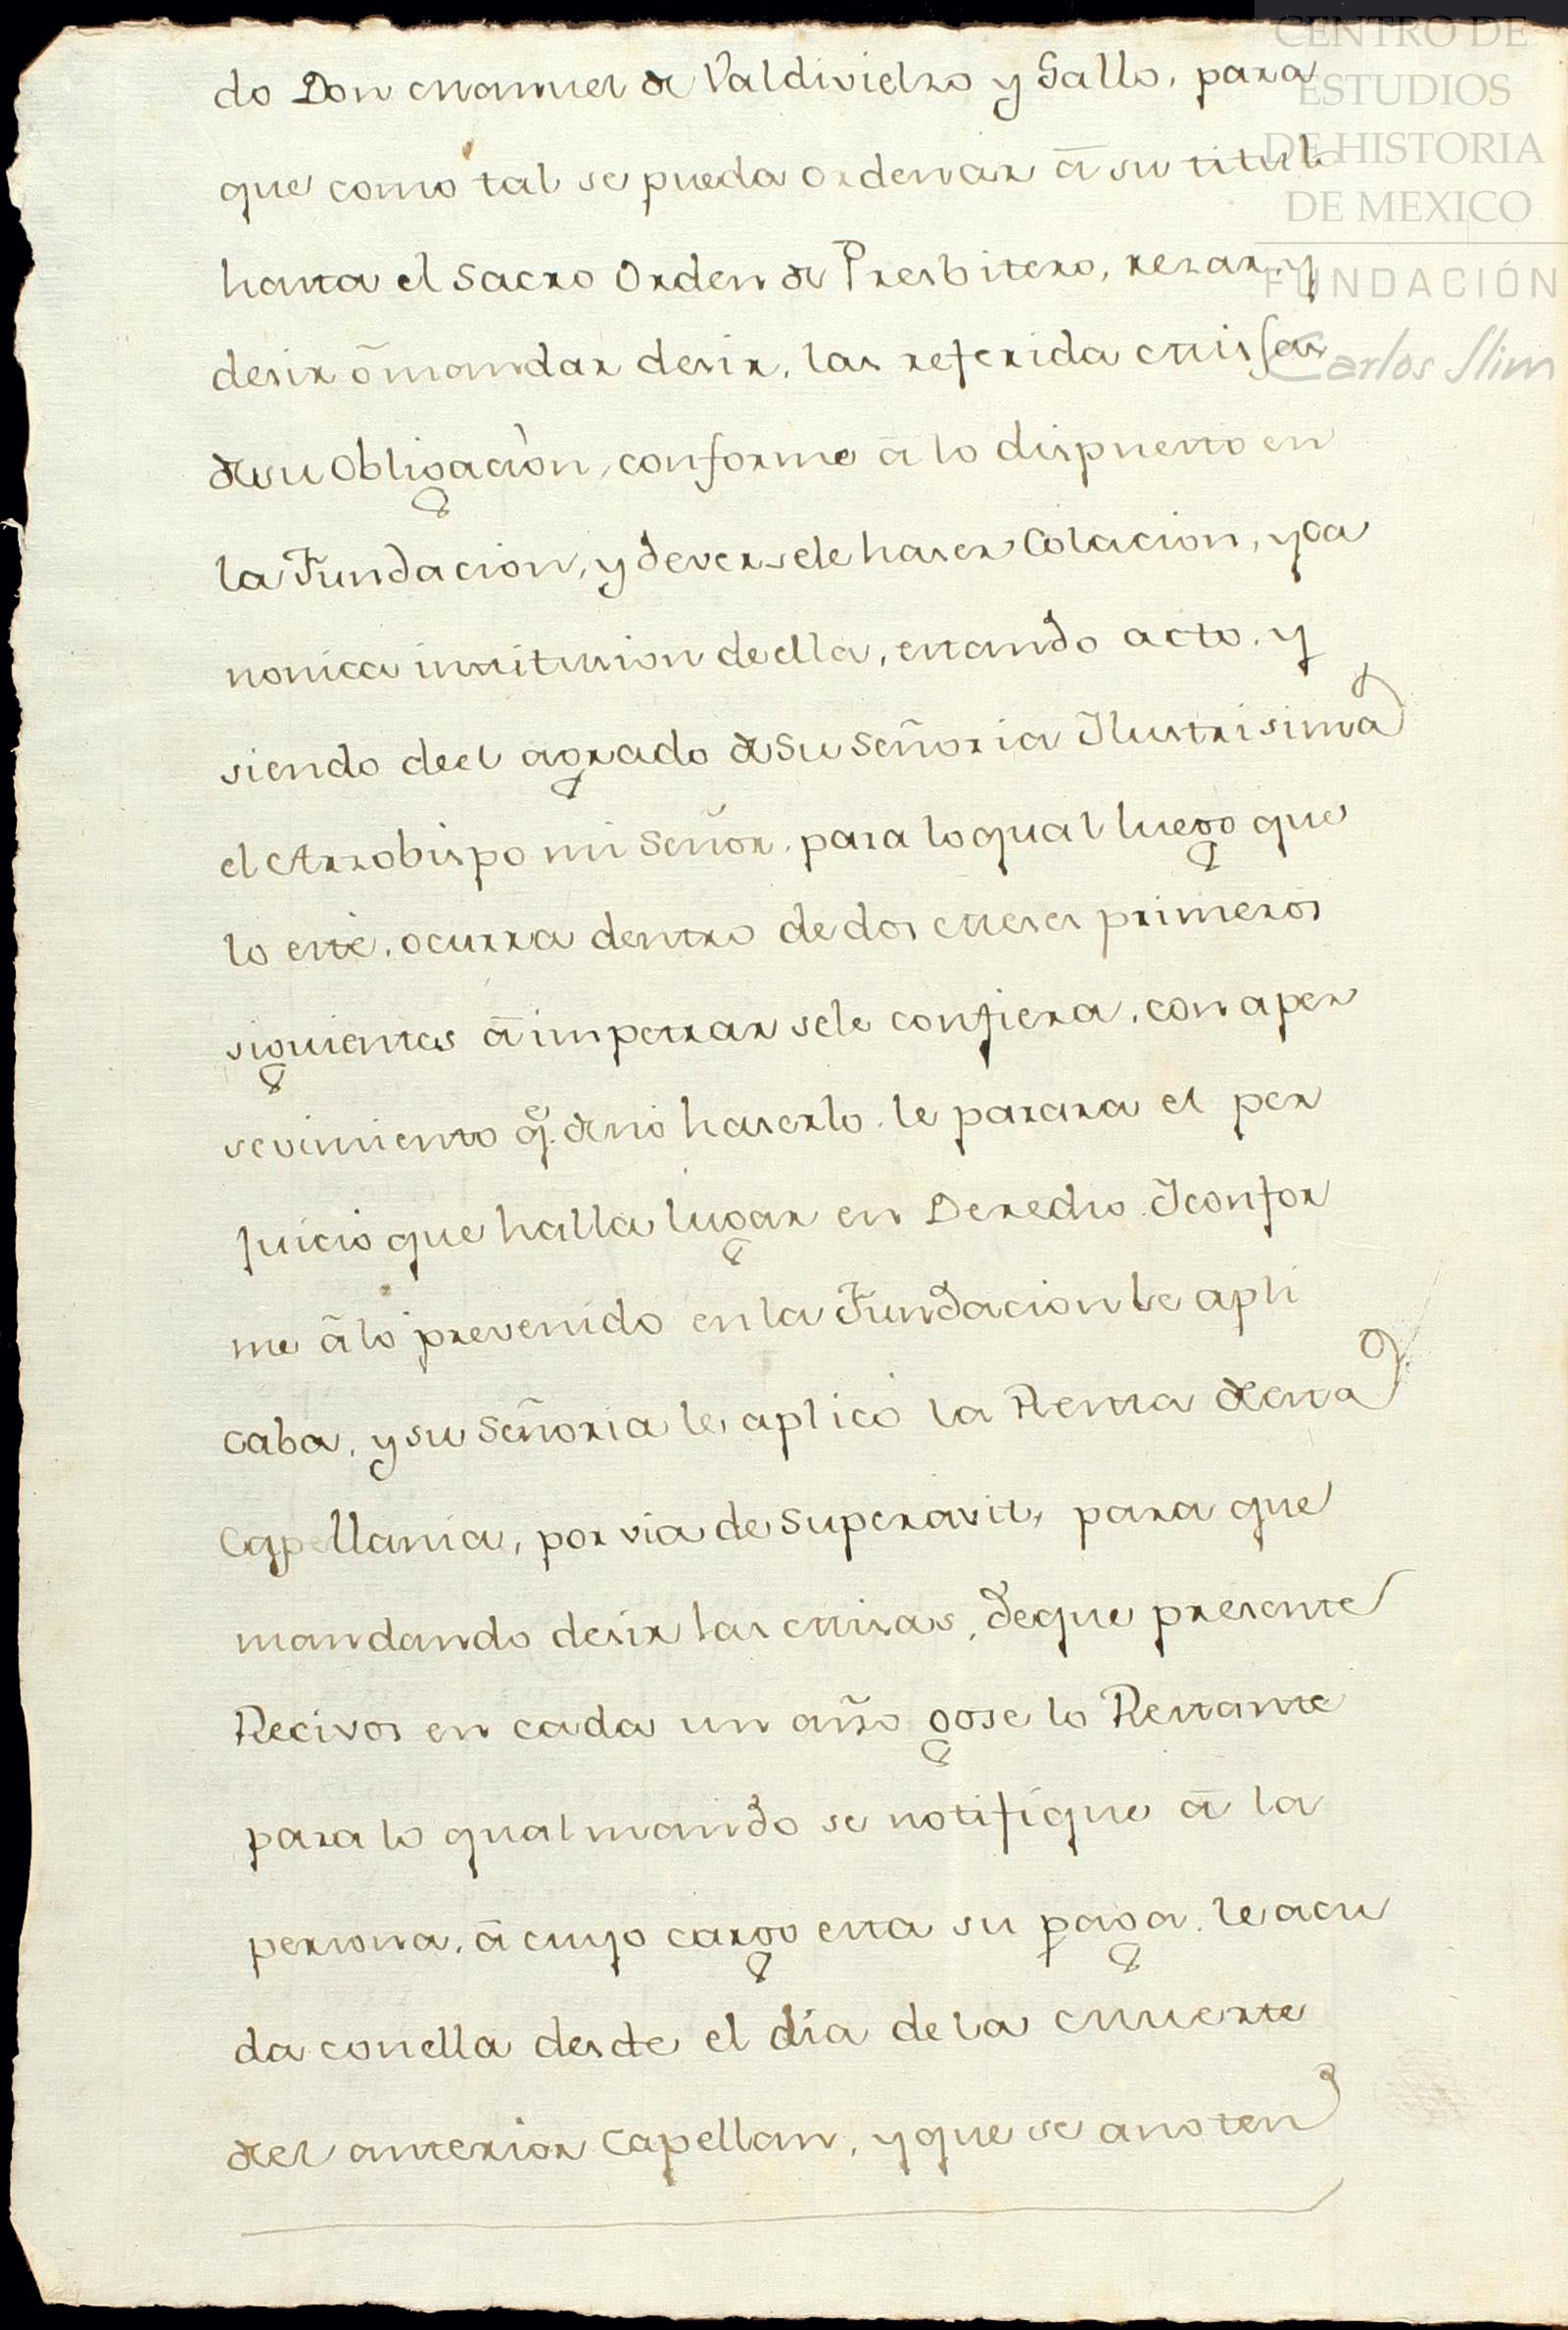 do Don Manuel de Valdivielso y Gallo, para
que como tal se pueda ordenar â su titulo
hasta el Sacro Orden de Presbitero, resar, y
desir ô mandar desir, las referida Missas
de su Obligaciòn, conforme â lo dispuesto en
la Fundacion, y deversele haser Colacion, y Ca
nonica institusion de ella, estando acto, y
siendo de el agrado de Su Señoria Ilustrisima
el Arzobispo mi Señor, para lo qual luego que
lo esté, ocurra dentro de dos Meses primeros
siguientes â impetrar se le confiera, con aper
sevimiento q.e de no haserlo le parara el per
juicio que halla lugar en Derecho Y confor
me â lo prevenido en la Fundacion le apli
caba, y su Señoria le aplicó la Renta de esta
Capellania, por via de Superavit, para que
mandando desir las Misas, de que presente
Recivos en cada un año gose lo Restante
para lo qual mando se notifique â la
persona, â cuyo cargo esta su paga, le acu
da con ella desde el dia de la Muerte
del anterior Capellan, y que se anoten
CENTRO DE
ESTUDIOS
DE HISTORIA
DE MEXICO
FUNDACIÓN
Carlos Slim